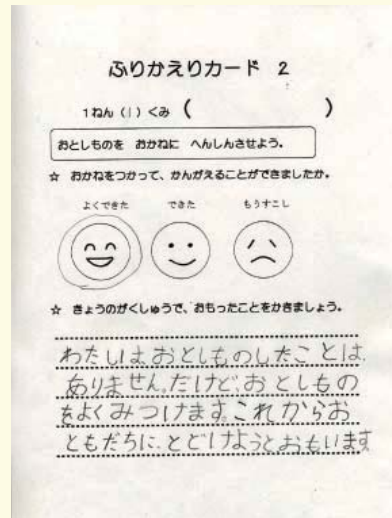 ふりかえりカード 2
1ねん(1)くみ( )
おとしものを おかねに へんしんさせよう。
☆ おかねをつかって、かんがえることができましたか。
よくできた できた もうすこし
☆ きょうのがくしゅうで、おもったことをかきましょう。
わたしは、おとしものしたことは、
ありません。だけど、おとしもの
をよくみつけます。これからお
ともだちに、とどけようとおもいます。